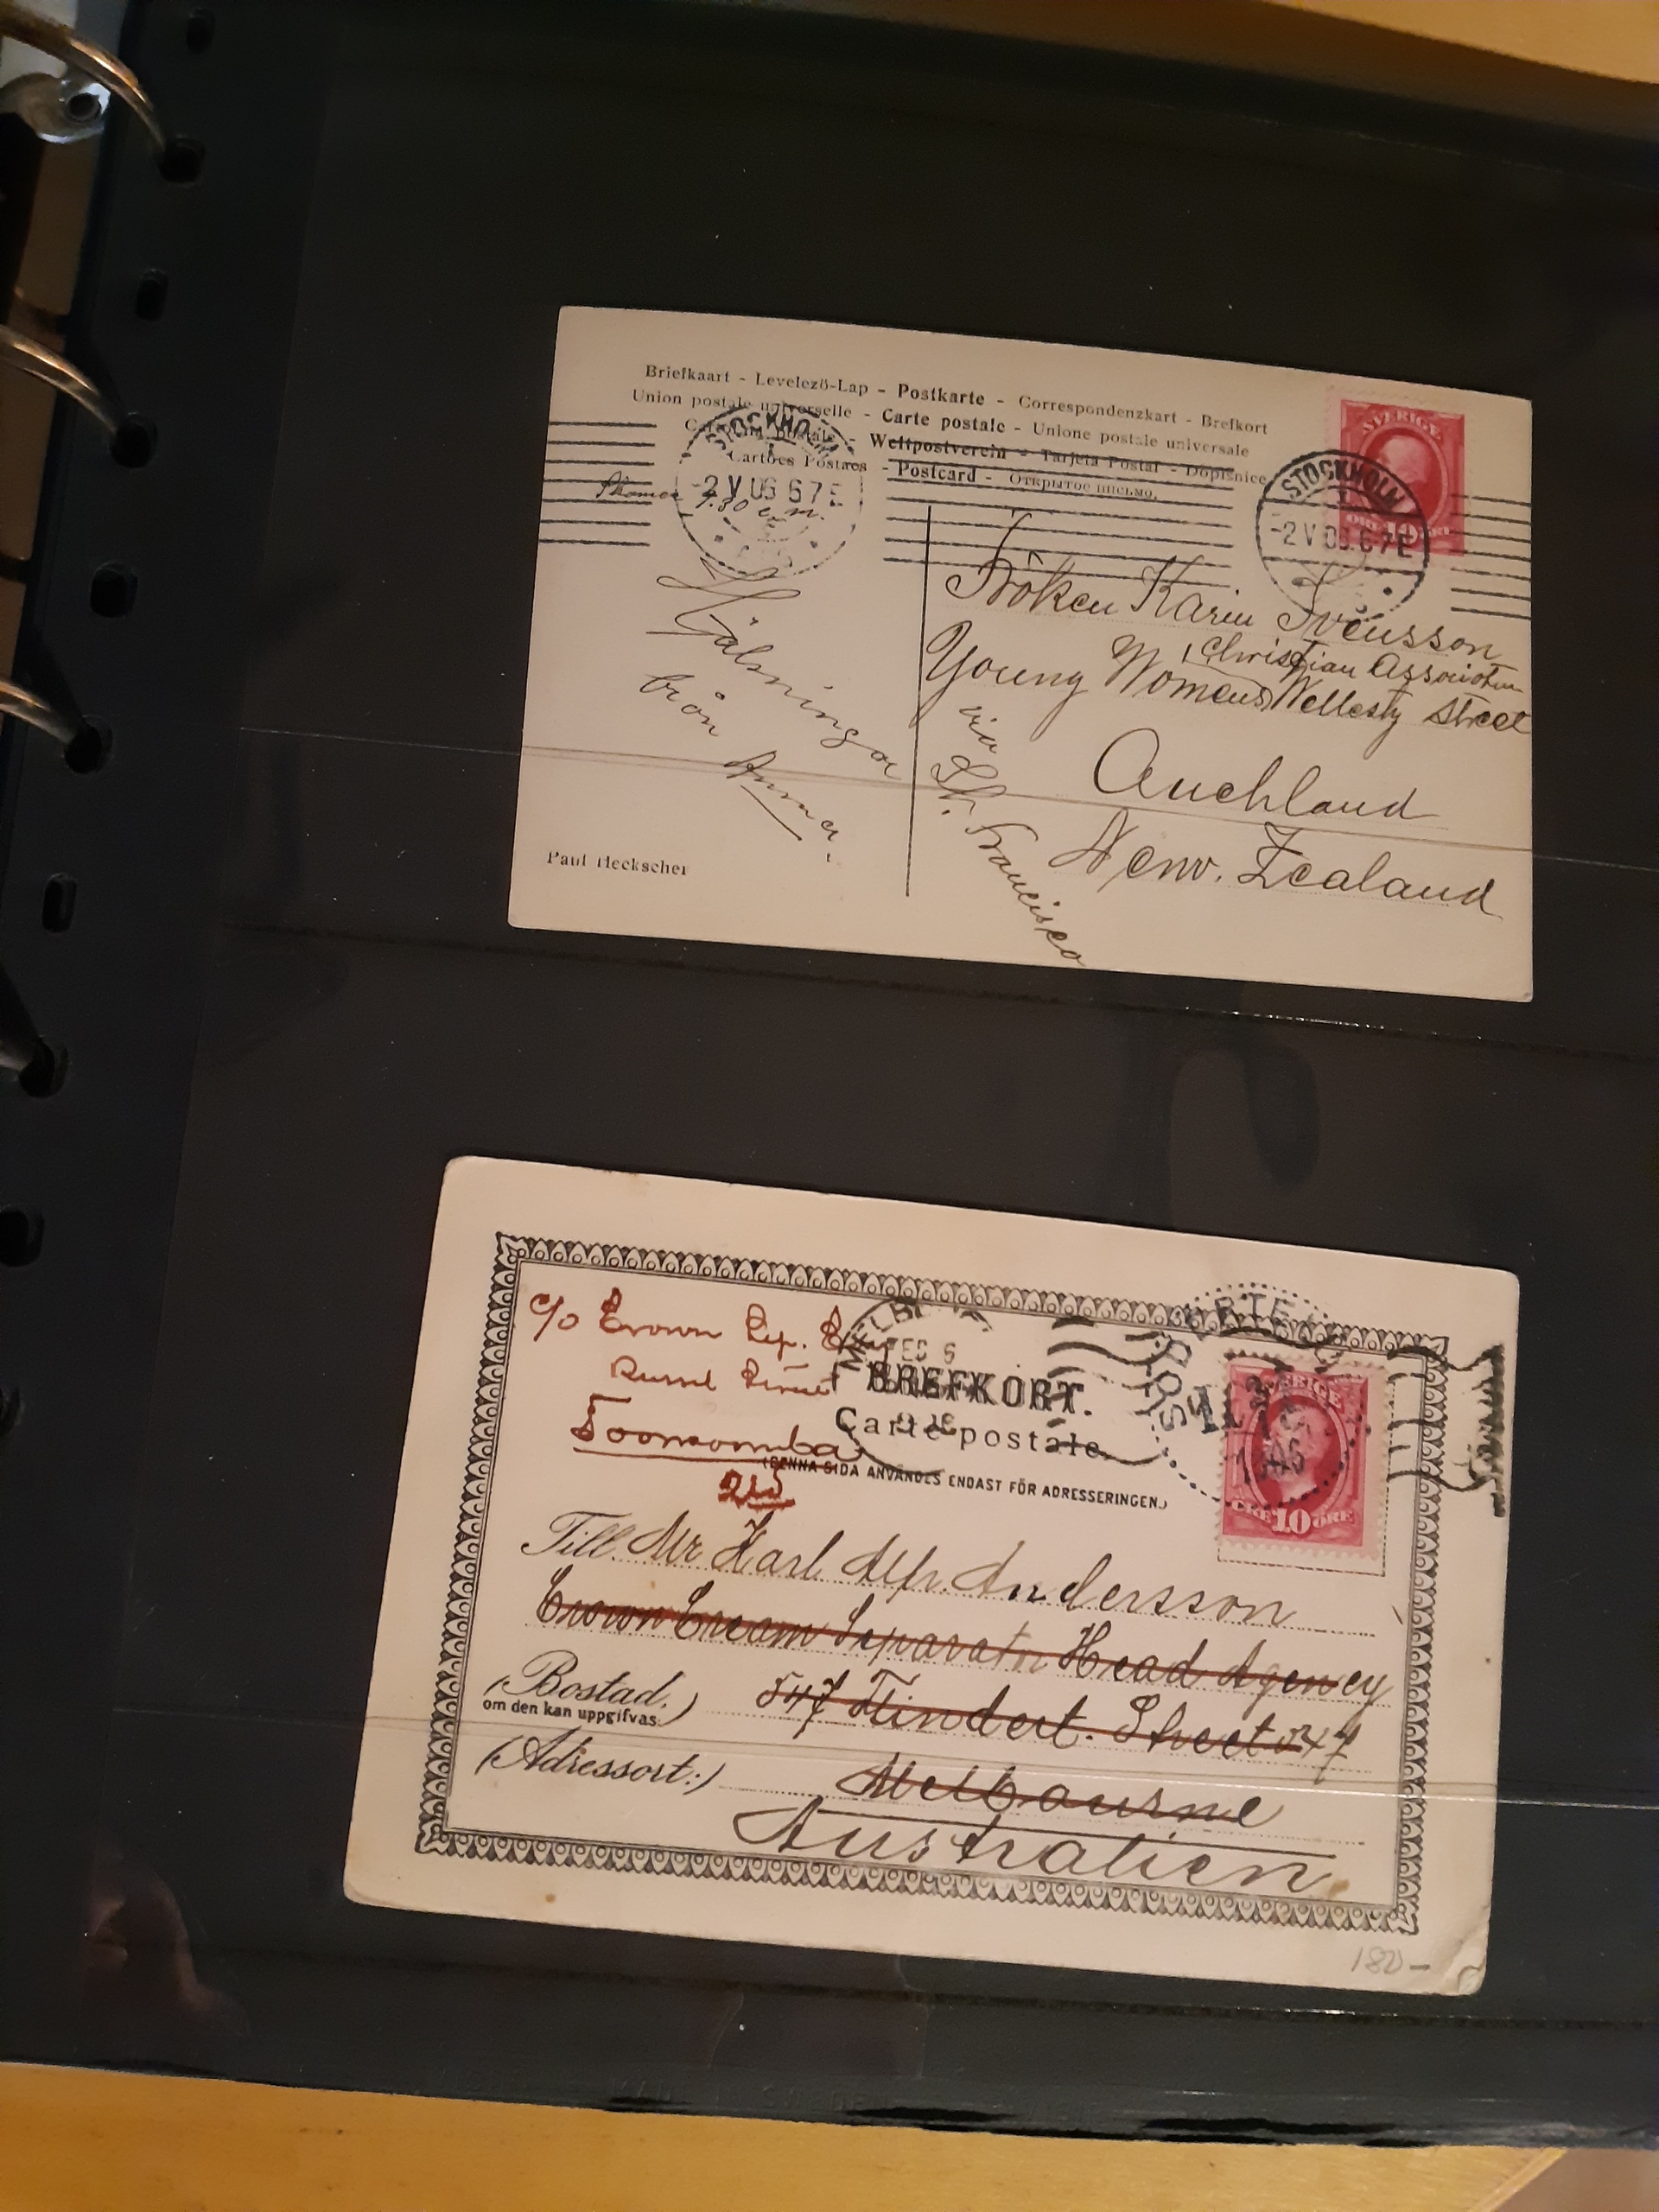 Briefkaart - Levelező-Lap - Postkarte - Correspondenzkart - Brefkort
Union postale universelle - Carte postale - Unione postale universale
postale - Weltpostverein - Tarjeta Postal - Dopisnice
Cartões Postaes - Postcard - Открытое письмо.
STOCKHOLM
1
-2 V 06 6 7 E
7.30 e. m.
SVERIGE
ÖRE 10 ÖRE
STOCKHOLM
1
-2 V 06 6 7 E
Fröken Karin Svensson
Christian Association
Young Womens Wellesly Street
Auckland
New. Zealand
via
St. Francisco
Hälsningar
från
Anna.
Paul Heckscher
c/o Crown Sep.
Street
Toowoomba
Qld
MELB
FEB 6
BREFKORT.
Carte postale.
(DENNA SIDA ANVÄNDES ENDAST FÖR ADRESSERINGEN.)
SVERIGE
ÖRE 10 ÖRE
Till Mr Karl Alfr. Andersson
Crown Cream Separator Head Agency
(Bostad,)
om den kan uppgifvas.
547 Flindert. Street 547
(Adressort:)
Melbourne
Australien
180-